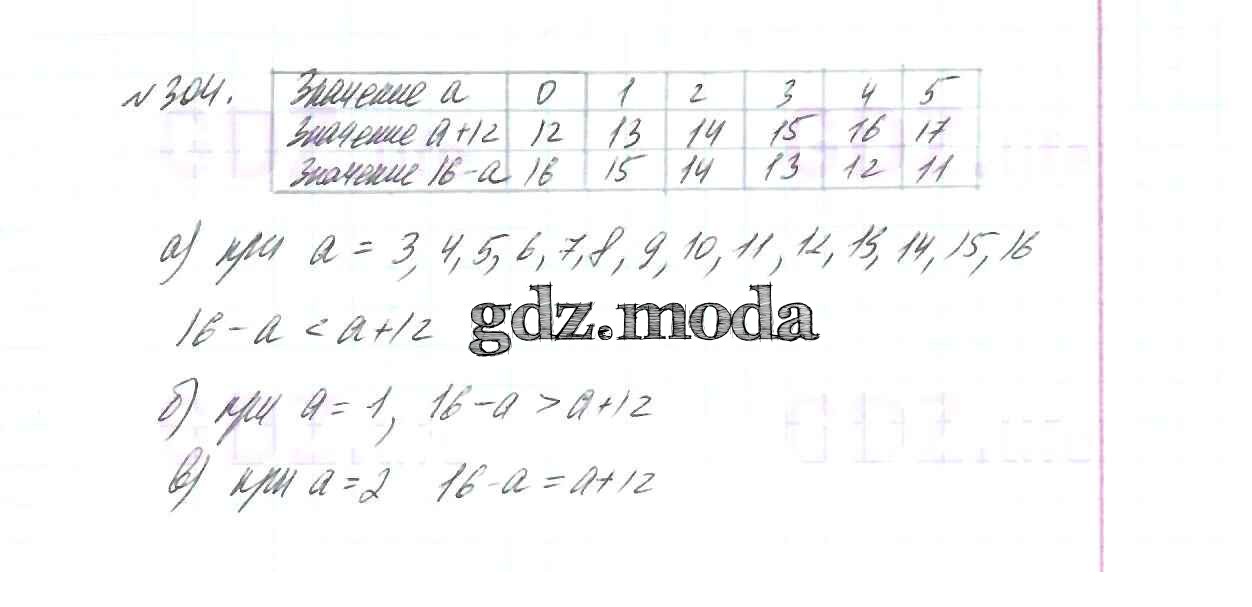 №304.
Значение a 0 1 2 3 4 5
Значение a+12 12 13 14 15 16 17
Значение 16-a 16 15 14 13 12 11
а) при a = 3, 4, 5, 6, 7, 8, 9, 10, 11, 12, 13, 14, 15, 16
16-a < a+12
gdz.moda
б) при a = 1, 16-a > a+12
в) при a = 2 16-a = a+12